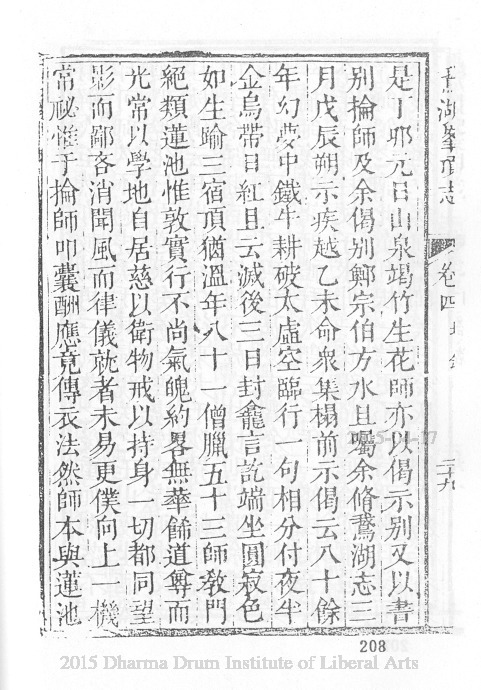 是丁卯元日山泉竭竹生花師亦以偈示別又以書
別掄師及余偈別鄭宗伯方水且囑余脩鵞湖志三
月戊辰朔示疾越乙未命衆集榻前示偈云八十餘
年幻夢中鐵牛耕破太虛空臨行一句相分付夜半
金烏帶日紅且云滅後三日封龕言訖端坐圓寂色
如生踰三宿頂猶溫年八十一僧臘五十三師敎門
絕類蓮池惟敦實行不尚氣魄約畧無華餙道尊而
光常以學地自居慈以衛物戒以持身一切都同望
影而鄙吝消聞風而律儀就者未易更僕向上一機
常祕惟于掄師叩囊酬應竟傳衣法然師本與蓮池
湖峯頂志
卷四
二十九
208
2015 Dharma Drum Institute of Liberal Arts